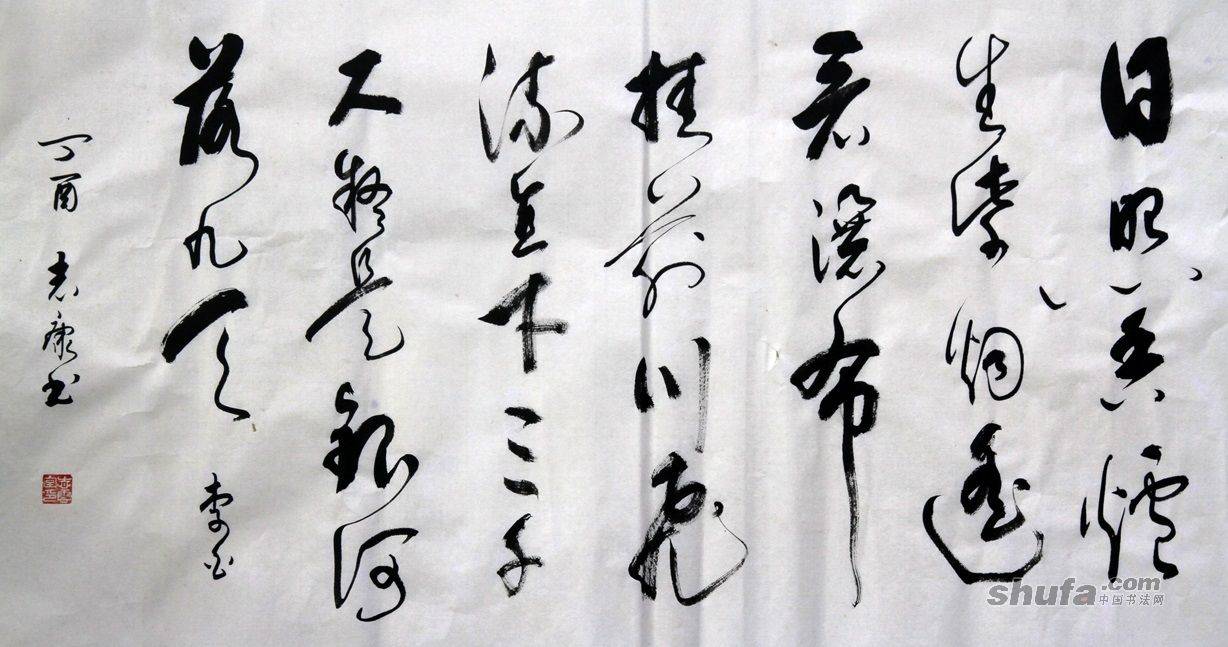 日照香爐
生紫烟遥
看瀑布
挂前川飛
流直下三千
尺疑是銀河
落九天
李白
丁酉 志康书
shufa.com
中国书法网